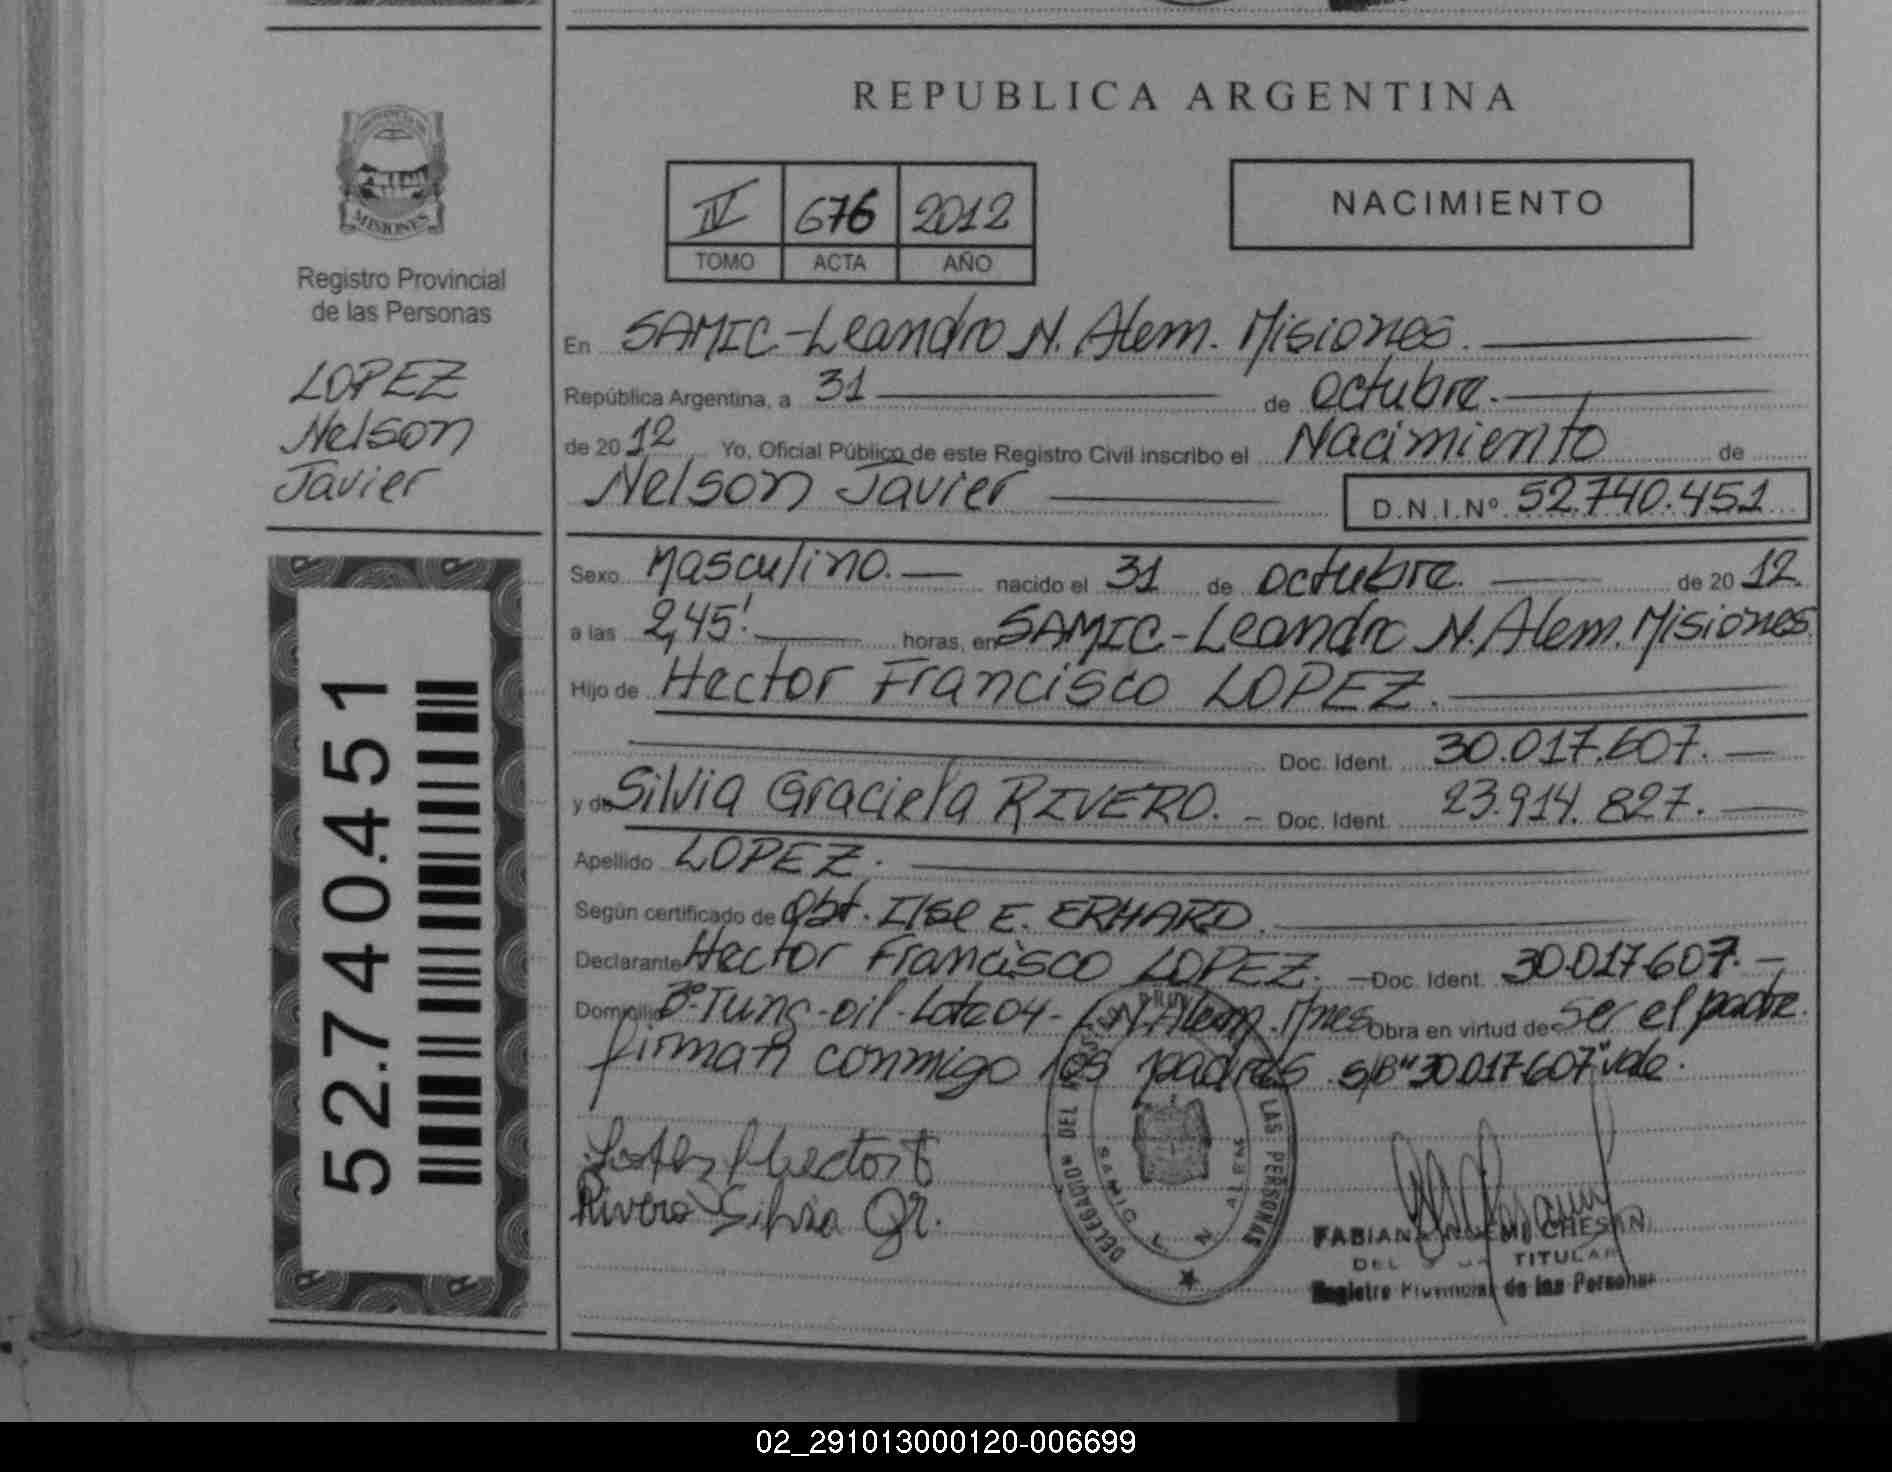 REPUBLICA ARGENTINA
MISIONES
Registro Provincial
de las Personas
LOPEZ
Nelson
Javier
52.740.451
IV 676 2012
TOMO ACTA AÑO
NACIMIENTO
En SAMIC-Leandro N. Alem. Misiones.
República Argentina, a 31 de octubre.
de 2012 Yo, Oficial Público de este Registro Civil inscribo el Nacimiento de
Nelson Javier D.N.I.Nº 52.740.451
Sexo Masculino. nacido el 31 de octubre. de 2012.
a las 2,45'. horas, en SAMIC.-Leandro N. Alem. Misiones.
Hijo de Hector Francisco LOPEZ.
Doc. Ident. 30.017.607.
y de Silvia Graciela RIVERO. Doc. Ident. 23.914.827.
Apellido LOPEZ.
Según certificado de Obt. Ilse E. ERHARD.
Declarante Hector Francisco LOPEZ. Doc. Ident. 30.017.607.
Domicilio Bº-Tung-oil-Lote 04-L.N.Alem.Mnes Obra en virtud de ser el padre.
firman conmigo los padres s/B "30.017.607" vale.
Hector F
Rivero Silvia Gr.
DELEGACION DEL LAS PERSONAS
SAMIC L N ALEM
FABIANA NOEMI CHESINI
TITULAR
Registro Provincial de las Personas
02_291013000120-006699